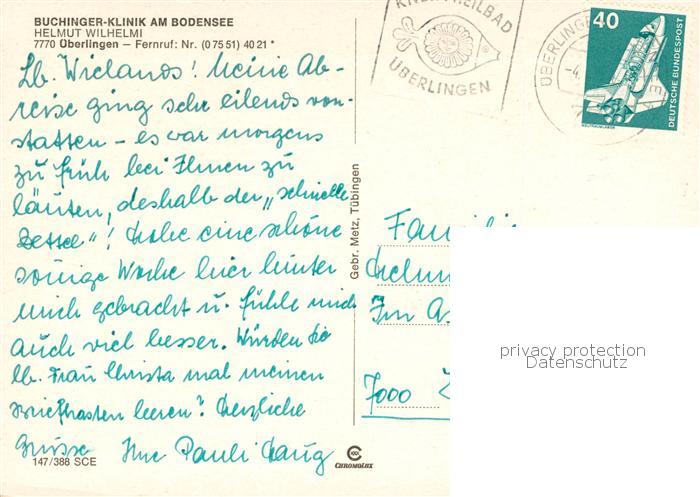 BUCHINGER-KLINIK AM BODENSEE
HELMUT WILHELMI
7770 Überlingen - Fernruf: Nr. (0 75 51) 40 21 *
Lb. Wielands! Meine Ab-
reise ging sehr eilends von-
statten - es war morgens
zu früh bei Ihnen zu
läuten, deshalb der "schnelle
Zettel"! Habe eine schöne
sonnige Woche hier hinter
mich gebracht u. fühle mich
auch viel besser. Würden Sie
lb. Frau Christa mal meinen
Briefkasten leeren? Herzliche
Grüsse Ihre Pauli
147/388 SCE
Gebr. Metz, Tübingen
CHROMOLUX
HEILBAD
ÜBERLINGEN
ÜBERLINGEN
40
DEUTSCHE BUNDESPOST
WELTRAUMLABOR
Familie
Im
7000
privacy protection
Datenschutz